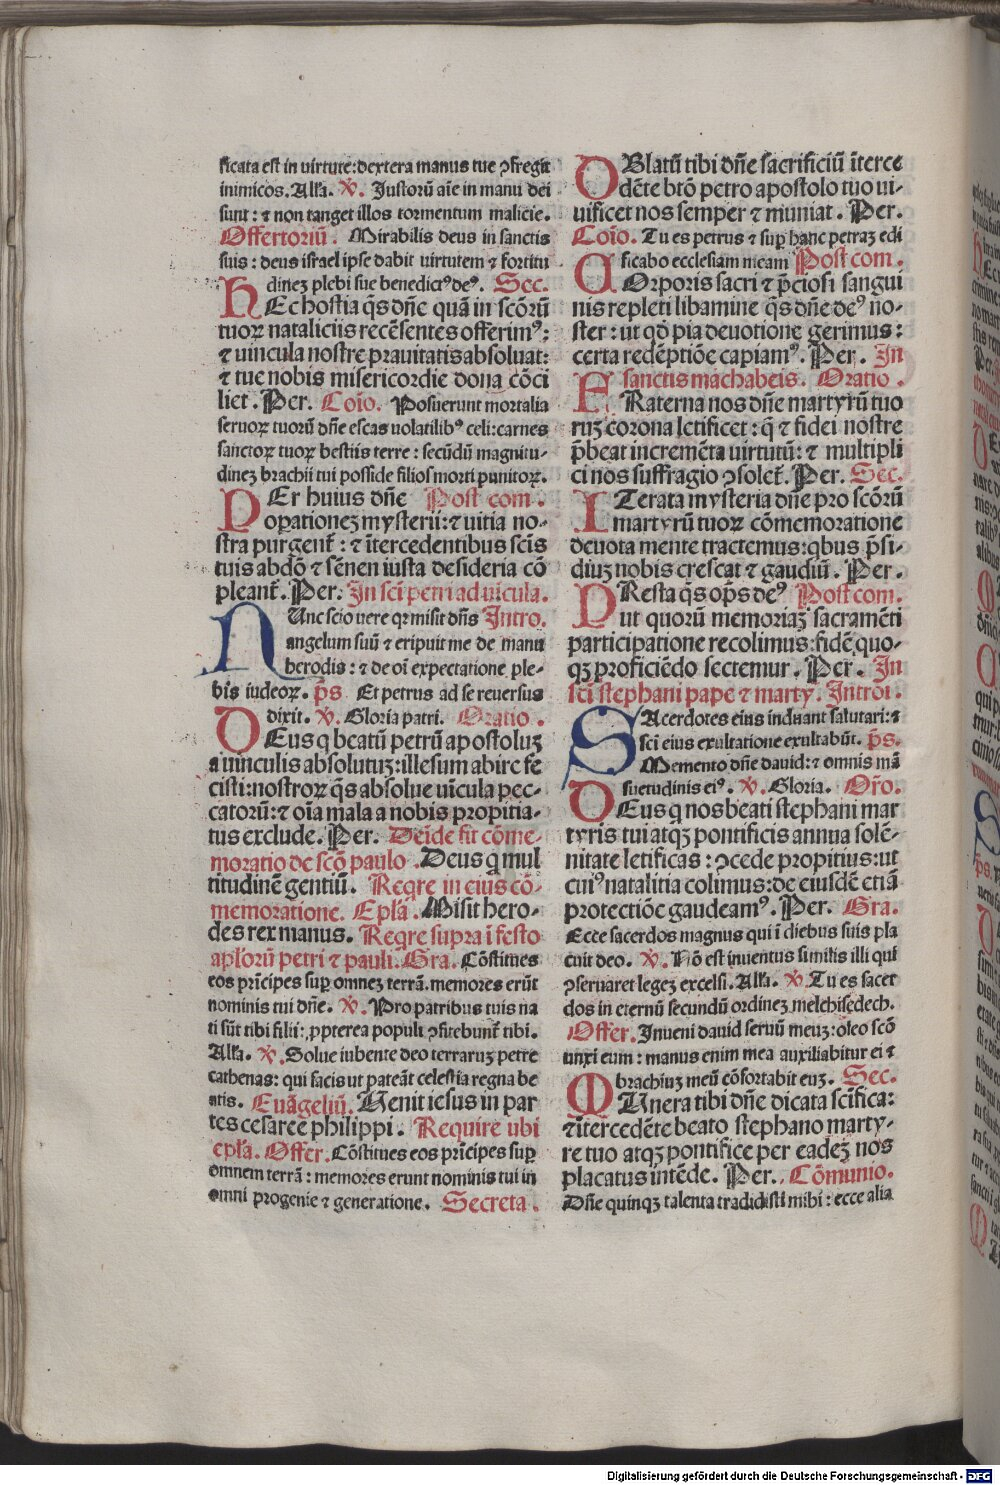 ficata est in virtute: dextera manus tue ꝯfregit
inimicos. Alľa. ℣. Justorū aīe in manu dei
sunt: ⁊ non tanget illos tormentum malicie.
Offertoriū. Mirabilis deus in sanctis
suis: deus israel ipse dabit virtutem ⁊ fortitu
dineȝ plebi sue benedictꝰ deꝰ. Sec.
HEc hostia q̄s dn̄e quā in scōrū
tuoꝝ nataliciis recēsentes offerimꝰ:
⁊ vincula nostre prauitatis absoluat:
⁊ tue nobis misericordie dona cōci
liet. Per. Coīo. Posuerunt mortalia
seruoꝝ tuorū dn̄e escas volatilibꝰ celi: carnes
sanctoꝝ tuoꝝ bestiis terre: secūdū magnitu-
dineȝ brachii tui posside filios morti punitoꝝ.
PEr huius dn̄e Post com.
operationeȝ mysterii: ⁊ vitia no-
stra purgent̄: ⁊ ītercedentibus scīs
tuis abdō ⁊ sēnen iusta desideria cō
pleant̄. Per. In scī petri ad vīcula.
NUnc scio vere qꝛ misit dn̄s Intro.
angelum suū ⁊ eripuit me de manu
herodis: ⁊ de oī expectatione ple-
bis iudeoꝝ. p̄s Et petrus ad se reuersus
dixit. ℣. Gloria patri. Oratio.
DEus q beatū petrū apostoluȝ
a vinculis absolutuȝ: illesum abire fe
cisti: nostroꝝ q̄s absolue vīcula pec-
catorū: ⁊ oīa mala a nobis propitia-
tus exclude. Per. Deīde fit cōme-
moratio de scō paulo. Deus q mul
titudinē gentiū. Reqre in eius cō-
memoratione. Epľa. Misit hero-
des rex manus. Reqre supra ī festo
apľorū petri ⁊ pauli. Gra. Cōstitues
eos prīcipes suꝑ omneȝ terrā. memores erūt
nominis tui dn̄e. ℣. Pro patribus tuis na
ti sūt tibi filii: ꝓpterea populi ꝯfitebunt̄ tibi.
Alľa. ℣. Solue iubente deo terraruȝ petre
cathenas: qui facis vt pateāt celestia regna be
atis. Euāgeliū. Venit iesus in par
tes cesaree philippi. Require vbi
epľa. Offer. Cōstitues eos prīcipes suꝑ
omnem terrā: memores erunt nominis tui in
omni progenie ⁊ generatione. Secreta.
OBlatū tibi dn̄e sacrificiū īterce
dēte btō petro apostolo tuo vi-
uificet nos semper ⁊ muniat. Per.
Coīo. Tu es petrus ⁊ suꝑ hanc petraȝ edi
ficabo ecclesiam meam Post com.
COrporis sacri ⁊ p̄ciosi sangui
nis repleti libamine q̄s dn̄e deꝰ no-
ster: vt qd̄ pia deuotione gerimus:
certa redēptiōe capiamꝰ. Per. In
sanctis machabeis. Oratio.
FRaterna nos dn̄e martyrū tuo
ruȝ corona letificet: q̄ ⁊ fidei nostre
p̄beat incremēta virtutū: ⁊ multipli
ci nos suffragio ꝯsolet̄. Per. Sec.
ITerata mysteria dn̄e pro scōrū
martyrū tuoꝝ cōmemoratione
deuota mente tractemus: qbus p̄si-
diuȝ nobis crescat ⁊ gaudiū. Per.
PResta q̄s op̄s deꝰ Post com.
vt quorū memoriaȝ sacramēti
participatione recolimus: fidē quo-
qȝ proficiēdo sectemur. Per. In
scī stephani pape ⁊ marty. Introi.
SAcerdotes eius induant salutari: ⁊
scī eius exultatione exultabūt. p̄s.
Memento dn̄e dauid: ⁊ omnis mā
suetudinis eiꝰ. ℣. Gloria. Or̄o.
DEus q nos beati stephani mar
tyris tui atqȝ pontificis annua solē-
nitate letificas: ꝯcede propitius: vt
cuiꝰ natalitia colimus: de eiusdē etiā
protectiōe gaudeamꝰ. Per. Gra.
Ecce sacerdos magnus qui ī diebus suis pla
cuit deo. ℣. Nō est inuentus similis illi qui
ꝯseruaret legeȝ excelsi. Alľa. ℣. Tu es sacer
dos in eternū secundū ordineȝ melchisedech.
Offer. Inueni dauid seruū meuȝ: oleo scō
vnxi eum: manus enim mea auxiliabitur ei ⁊
brachiuȝ meū cōfortabit euȝ. Sec.
MUnera tibi dn̄e dicata scīfica:
⁊ ītercedēte beato stephano marty-
re tuo atqȝ pontifice per eadeȝ nos
placatus intēde. Per. Cōmunio.
Dn̄e quinqȝ talenta tradidisti mihi: ecce alia
Digitalisierung gefördert durch die Deutsche Forschungsgemeinschaft - DFG